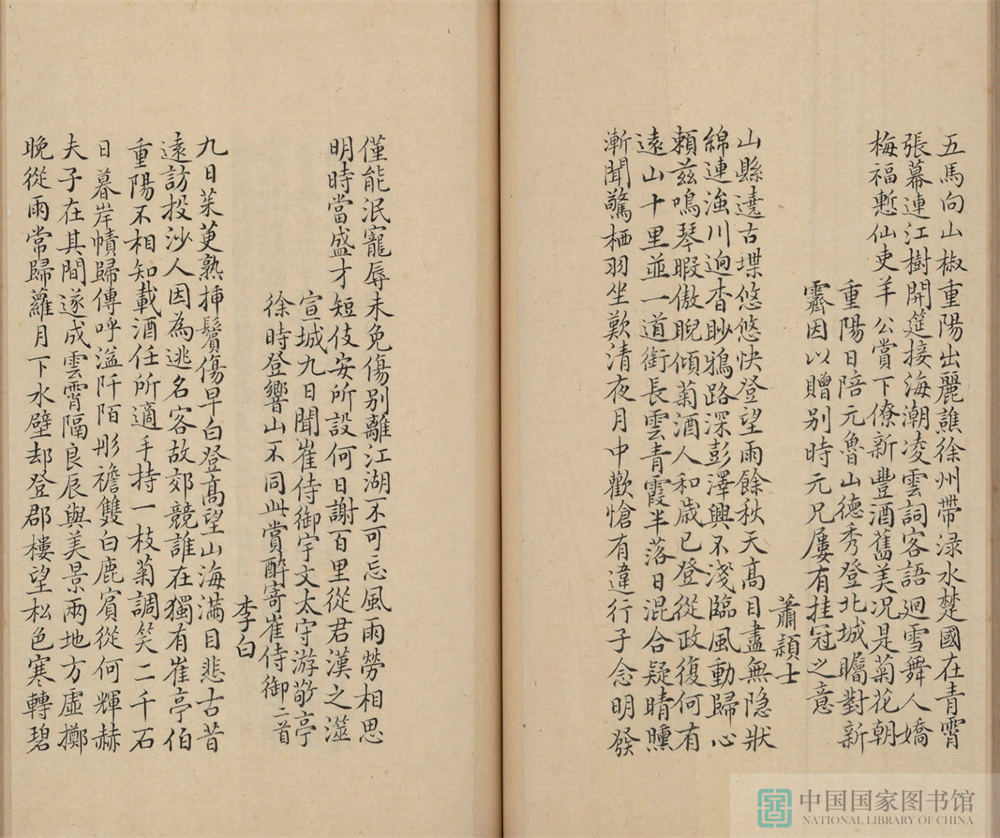 五馬向山椒重陽出麗譙徐州帶淥水楚國在青霄
張幕連江樹開筵接海潮凌雲詞客語迴雪舞人嬌
梅福慙仙吏羊公賞下僚新豐酒舊美况是菊花朝
重陽日陪元魯山德秀登北城矚對新
霽因以贈别時元兄屢有挂冠之意
蕭穎士
山縣遶古堞悠悠快登望雨餘秋天高目盡無隐狀
綿連滍川迥杳眇鴉路深彭澤興不淺臨風動歸心
頼兹鳴琴暇傲睨傾菊酒人和歲已登從政復何有
遠山十里並一道銜長雲青霞半落日混合疑晴曛
漸聞驚栖羽坐歎清夜月中歡愴有違行子念明發
僅能泯寵辱未免傷别離江湖不可忘風雨勞相思
明時當盛才短伎安所設何日謝百里從君漢之澨
宣城九日聞崔侍御宇文太守游敬亭
徐時登響山不同此賞醉寄崔侍御二首
李白
九日茱萸熟揷鬢傷早白登髙望山海滿目悲古昔
遠訪投沙人因為逃名客故郊競誰在獨有崔亭伯
重陽不相知載酒任所適手持一枝菊調笑二千石
日暮岸幘歸傳呼溢阡陌彤襜雙白鹿賓從何輝赫
夫子在其間遂成雲霄隔良辰與美景兩地方虚擲
晚從雨常歸蘿月下水壁却登郡樓望松色寒轉碧
中国国家图书馆
NATIONAL LIBRARY OF CHINA